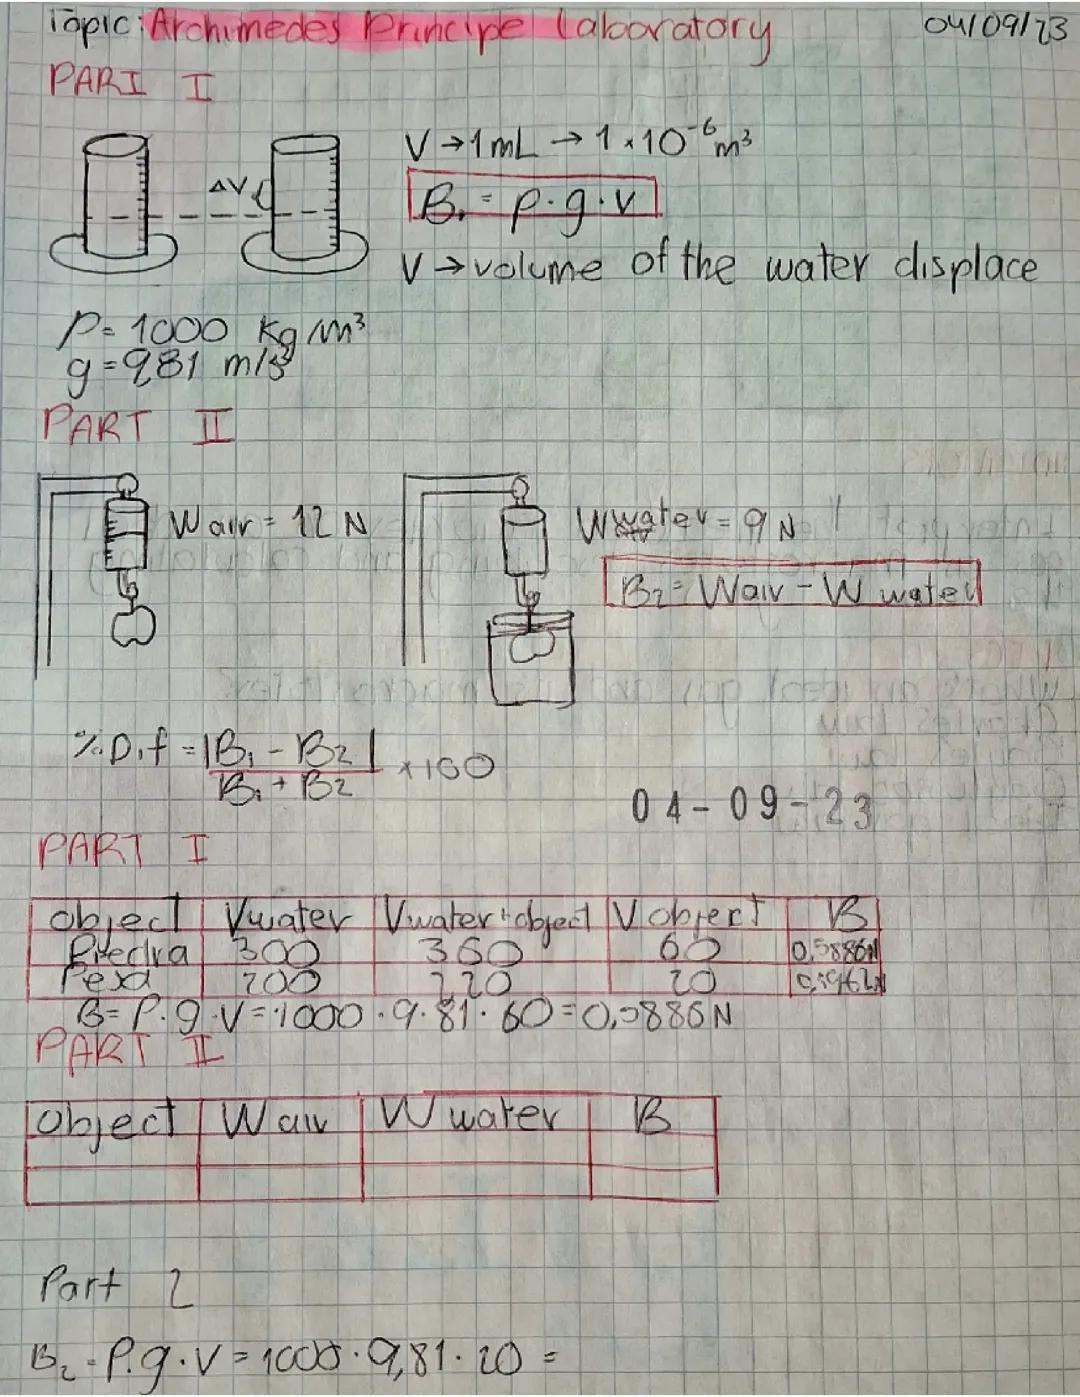 Topic: Archimedes Principe Laboratory 04/09/23
PART I
V → 1 mL → 1 × 10⁻⁶ m³
ΔV
B₁ = ρ · g · v
V → volume of the water displace
ρ = 1000 Kg/m³
g = 9,81 m/s²
PART II
Wair = 12 N
Wwater = 9 N
B₂ = Wair - W water
% Dif = |B₁ - B₂| / B₁ + B₂ × 100
04-09-23
PART I
object Vwater Vwater+object V object B
Piedra 300 360 60 0,5886N
Pesa 200 220 20 0,1962N
B = ρ · g · V = 1000 · 9.81 · 60 = 0,5886N
PART II
Object W air W water B
Part 2
B₂ = ρ.g.V = 1000 · 9,81 · 20 =